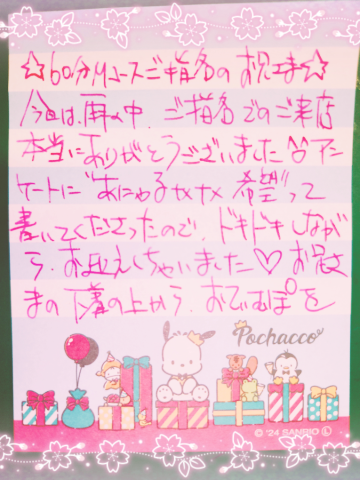 ☆60分Mコースご指名のお兄さま☆
今日は、雨の中、ご指名でのご来店
本当にありがとうございました アン
ケートに"あにゃるなめなめ 希望"って
書いてくださったので、ドキドキしなが
ら、お迎えしちゃいました♡お兄さ
まの下着の上から、おてぃむぽを
Pochacco
© '24 SANRIO Ⓛ